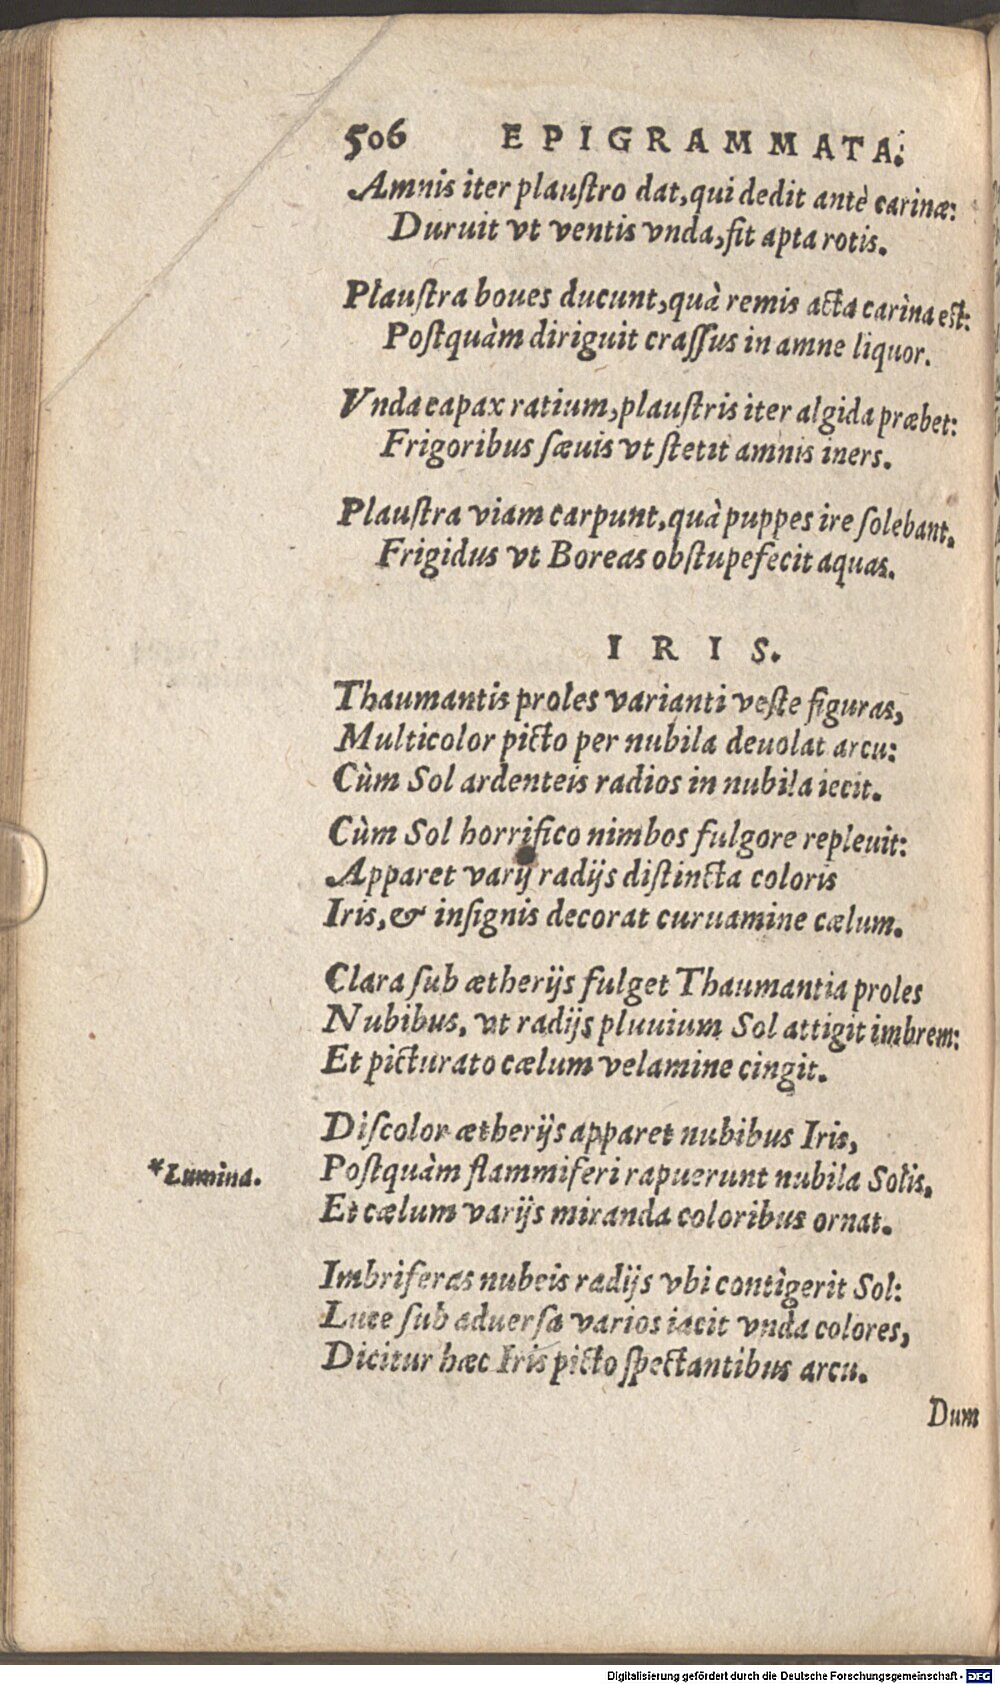 506 EPIGRAMMATA.
Amnis iter plauſtro dat, qui dedit antè carinæ:
Duruit vt ventis vnda, fit apta rotis.
Plauſtra boues ducunt, quà remis acta carina est:
Poſtquàm diriguit craſſus in amne liquor.
Vnda capax ratium, plauſtris iter algida præbet:
Frigoribus ſæuis vt ſtetit amnis iners.
Plauſtra viam carpunt, quà puppes ire ſolebant.
Frigidus vt Boreas obſtupefecit aquas.
IRIS.
Thaumantis proles varianti veſte figuras,
Multicolor picto per nubila deuolat arcu:
Cùm Sol ardenteis radios in nubila iecit.
Cùm Sol horrifico nimbos fulgore repleuit:
Apparet varij radijs diſtincta coloris
Iris, & inſignis decorat curuamine cælum.
Clara ſub ætherijs fulget Thaumantia proles
Nubibus, vt radijs pluuium Sol attigit imbrem:
Et picturato cælum velamine cingit.
Diſcolor ætherijs apparet nubibus Iris,
*Lumina. Poſtquàm flammiferi rapuerunt nubila Solis,
Et cælum varijs miranda coloribus ornat.
Imbriferas nubeis radijs vbi contigerit Sol:
Luce ſub aduerſa varios iacit vnda colores,
Dicitur hæc Iris picto ſpectantibus arcu.
Dum
Digitalisierung gefördert durch die Deutsche Forschungsgemeinschaft - DFG